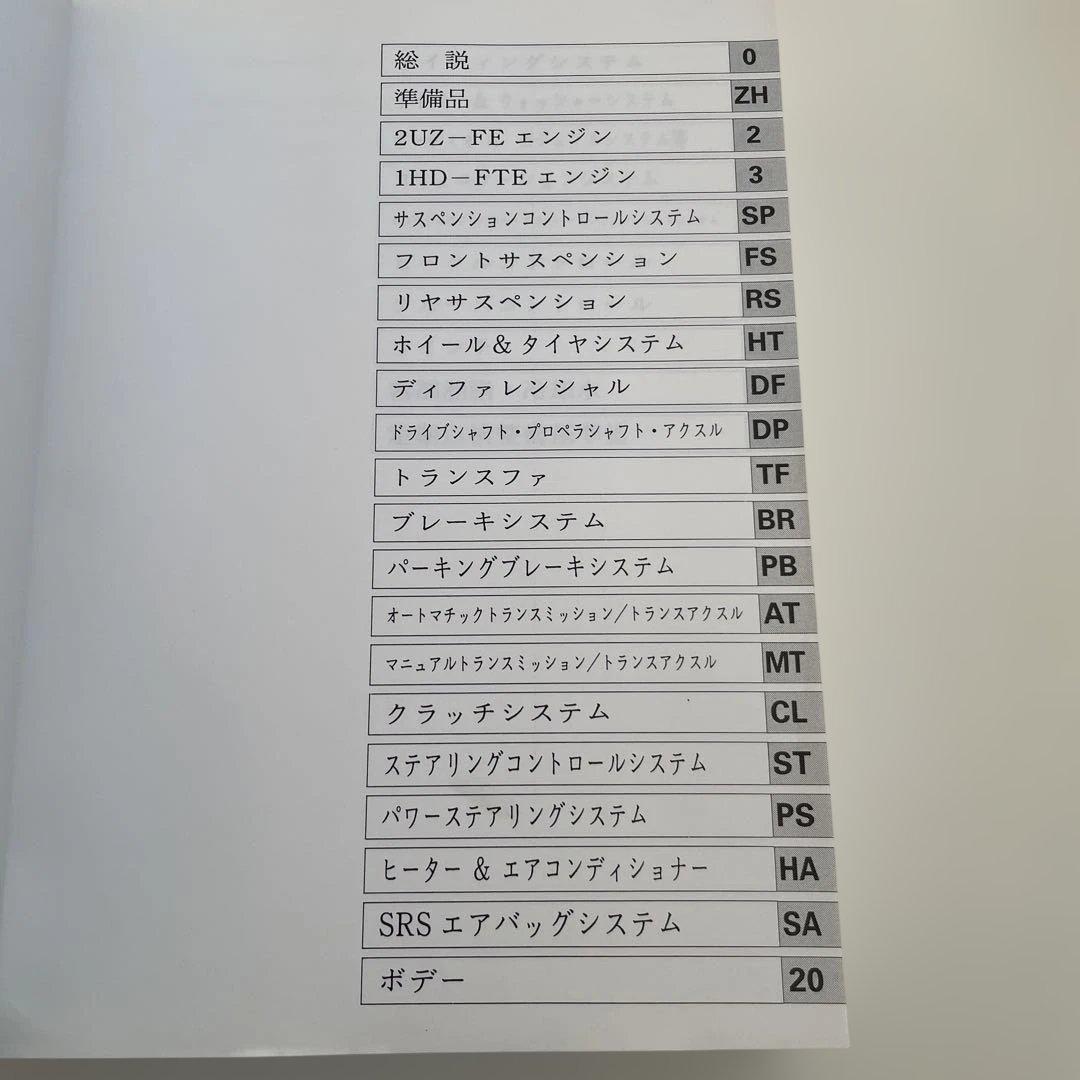 総 説 0
準備品 ZH
2UZ－FE エンジン 2
1HD－FTE エンジン 3
サスペンションコントロールシステム SP
フロントサスペンション FS
リヤサスペンション RS
ホイール & タイヤシステム HT
ディファレンシャル DF
ドライブシャフト・プロペラシャフト・アクスル DP
トランスファ TF
ブレーキシステム BR
パーキングブレーキシステム PB
オートマチックトランスミッション/トランスアクスル AT
マニュアルトランスミッション/トランスアクスル MT
クラッチシステム CL
ステアリングコントロールシステム ST
パワーステアリングシステム PS
ヒーター & エアコンディショナー HA
SRS エアバッグシステム SA
ボデー 20